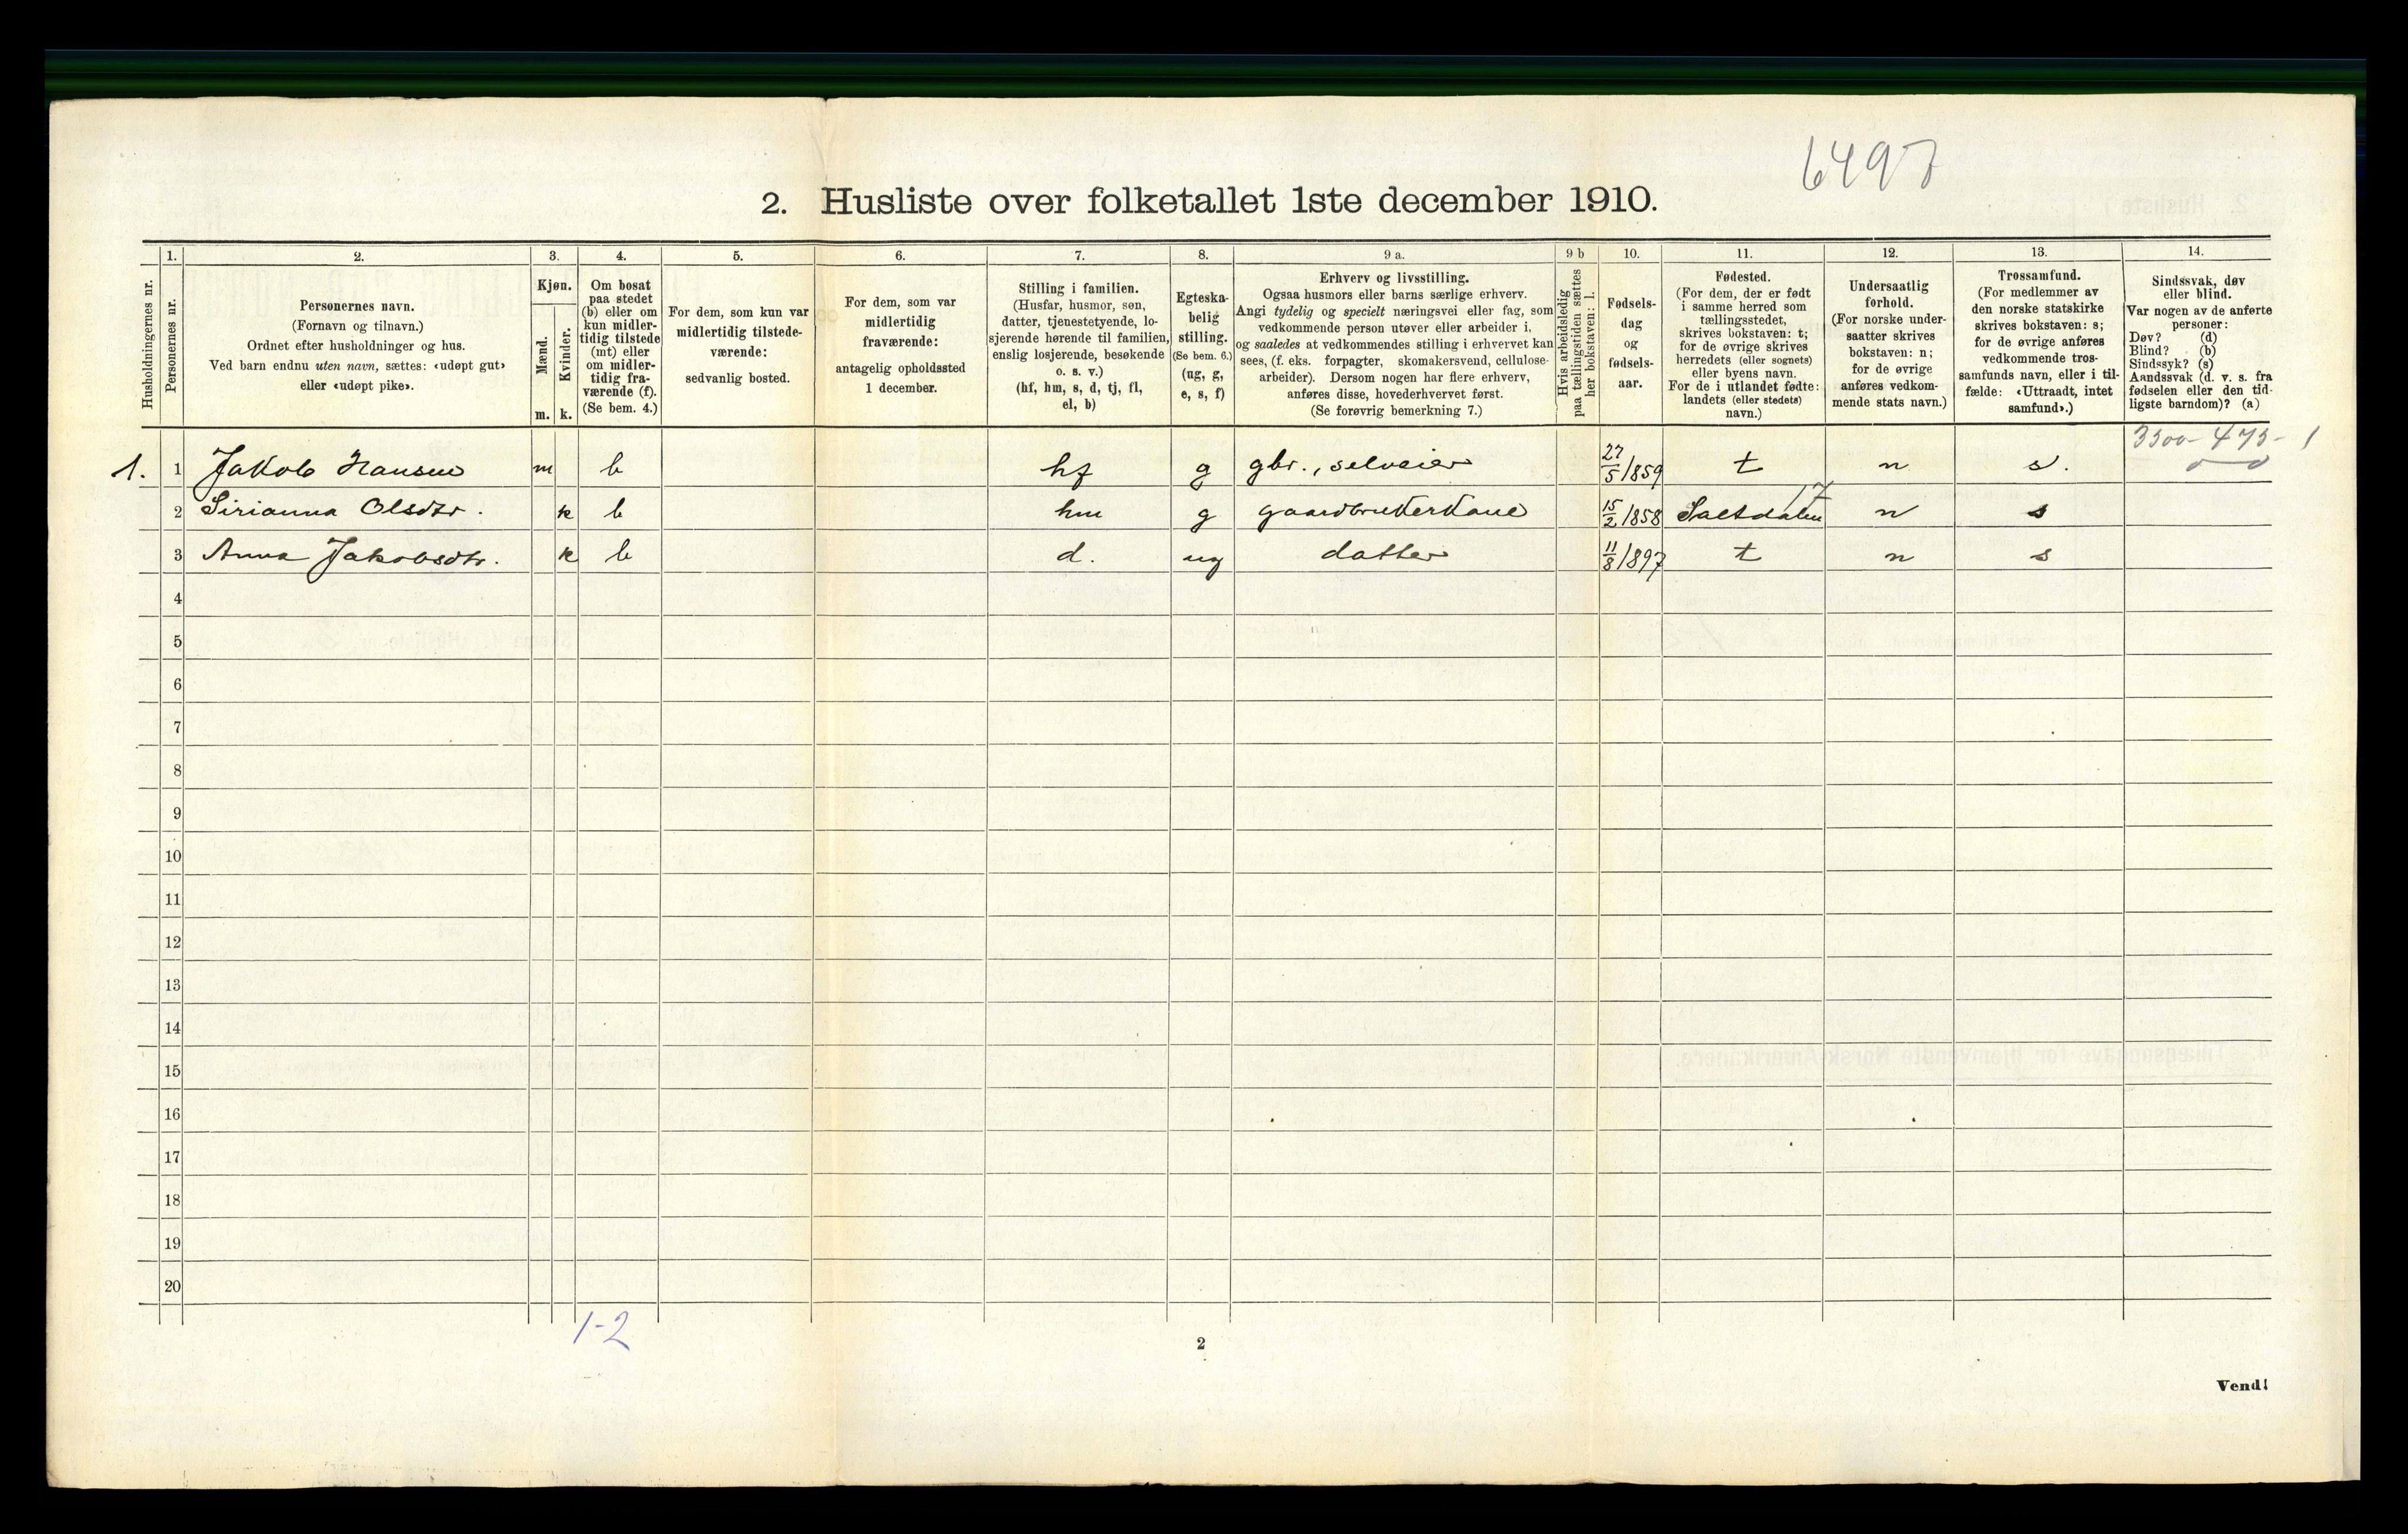 6497
2. Husliste over folketallet 1ste december 1910.
Husholdningernes nr.
1.
Personernes nr.
2.
Personernes navn.
(Fornavn og tilnavn.)
Ordnet efter husholdninger og hus.
Ved barn endnu uten navn, sættes: «udøpt gut»
eller «udøpt pike».
3.
Kjøn.
Mænd.
m.
Kvinder.
k.
4.
Om bosat
paa stedet
(b) eller om
kun midler-
tidig tilstede
(mt) eller
om midler-
tidig fra-
værende (f).
(Se bem. 4.)
5.
For dem, som kun var
midlertidig tilstede-
værende:
sedvanlig bosted.
6.
For dem, som var
midlertidig
fraværende:
antagelig opholdssted
1 december.
7.
Stilling i familien.
(Husfar, husmor, søn,
datter, tjenestetyende, lo-
sjerende hørende til familien,
enslig losjerende, besøkende
o. s. v.)
(hf, hm, s, d, tj, fl,
el, b)
8.
Egteska-
belig
stilling.
(Se bem. 6.)
(ug, g,
e, s, f)
9 a.
Erhverv og livsstilling.
Ogsaa husmors eller barns særlige erhverv.
Angi tydelig og specielt næringsvei eller fag, som
vedkommende person utøver eller arbeider i,
og saaledes at vedkommendes stilling i erhvervet kan
sees, (f. eks. forpagter, skomakersvend, cellulose-
arbeider). Dersom nogen har flere erhverv,
anføres disse, hovederhvervet først.
(Se forøvrig bemerkning 7.)
9 b
Hvis arbeidsledig
paa tællingstiden sættes
her bokstaven: l.
10.
Fødsels-
dag
og
fødsels-
aar.
11.
Fødested.
(For dem, der er født
i samme herred som
tællingsstedet,
skrives bokstaven: t;
for de øvrige skrives
herredets (eller sognets)
eller byens navn.
For de i utlandet fødte:
landets (eller stedets)
navn.)
12.
Undersaatlig
forhold.
(For norske under-
saatter skrives
bokstaven: n;
for de øvrige
anføres vedkom-
mende stats navn.)
13.
Trossamfund.
(For medlemmer av
den norske statskirke
skrives bokstaven: s;
for de øvrige anføres
vedkommende tros-
samfunds navn, eller i til-
fælde: «Uttraadt, intet
samfund».)
14.
Sindssvak, døv
eller blind.
Var nogen av de anførte
personer:
Døv? (d)
Blind? (b)
Sindssyk? (s)
Aandssvak (d. v. s. fra
fødselen eller den tid-
ligste barndom)? (a)
3300-475-1
0 0
1. 1 Jakob Hansen m b hf g gbr., selveier 27/5 1859 t n s.
17
2 Sirianna Olsdtr. k b hm g gaardbrukerkone 15/2 1858 Saltdalen n s
3 Anna Jakobsdtr. k b d. ug datter 11/8 1897 t n s
4
5
6
7
8
9
10
11
12
13
14
15
16
17
18
19
20
1-2
2
Vend!